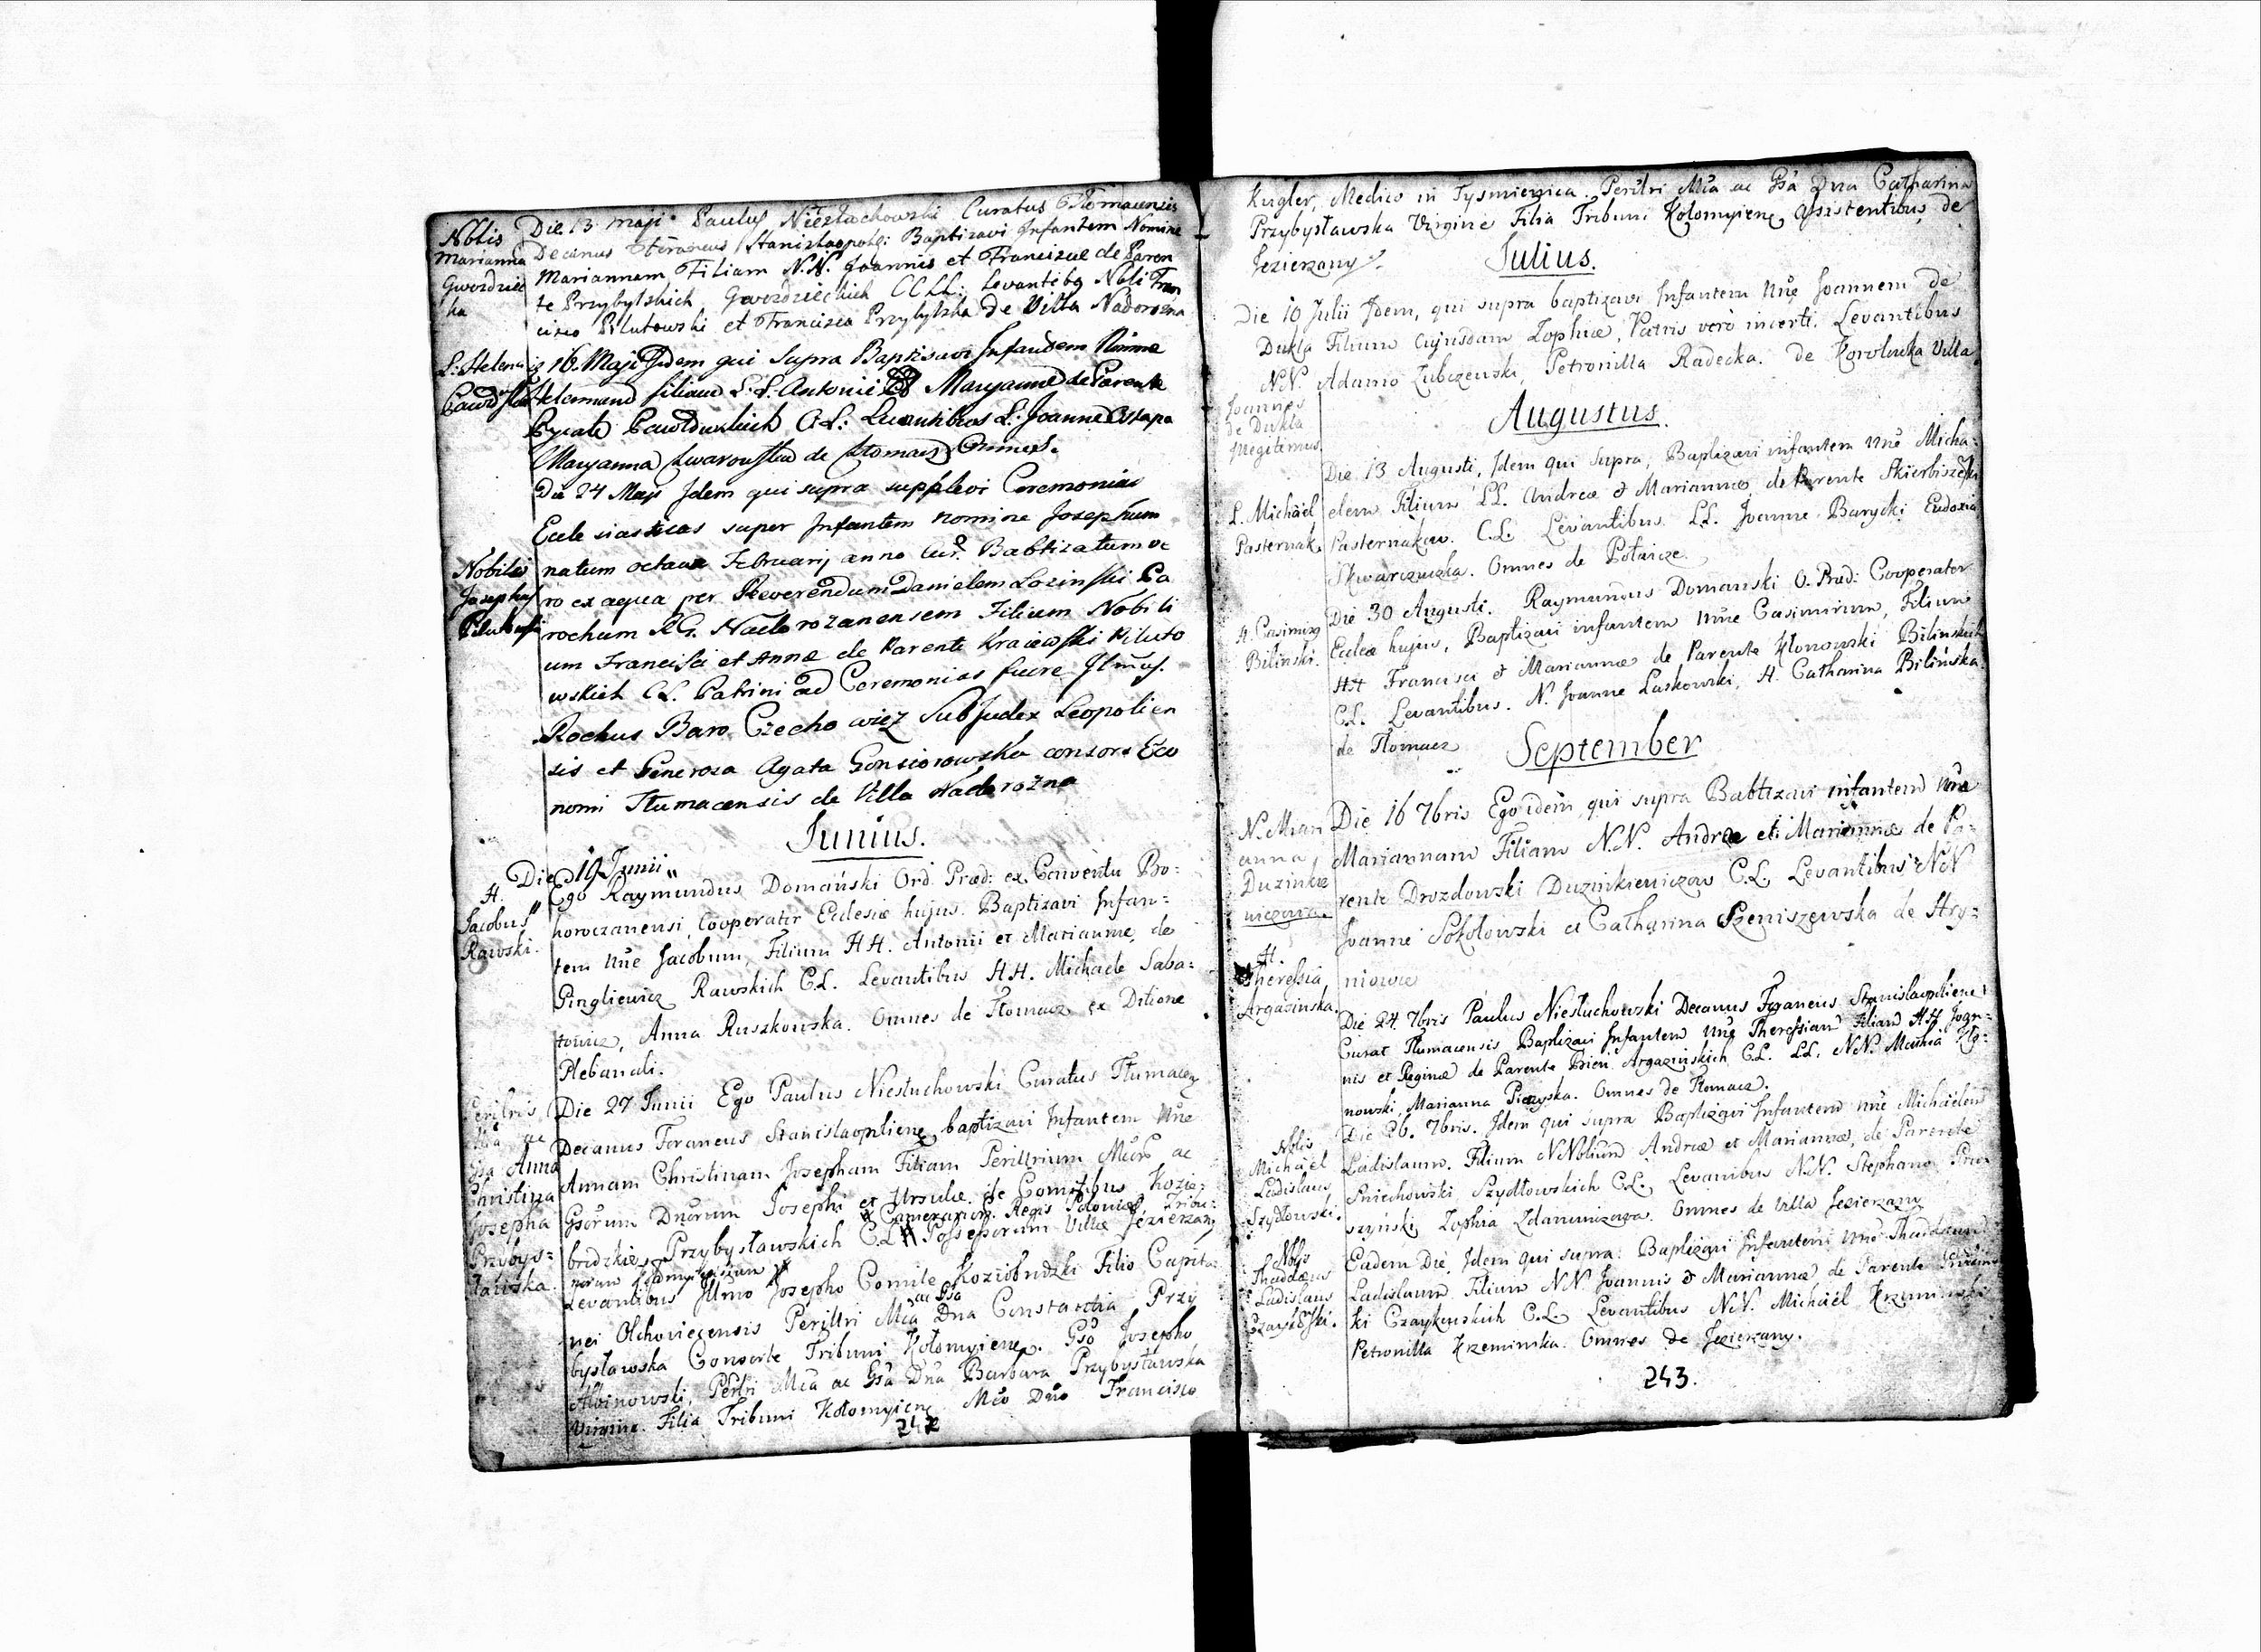 Nobis
Marianna
Gwozdziec
ka
Die 13 Maji Paulus Niesluchowski Curatus Tlomacensis
Decanus Foraneus Stanislaopoli: Baptisavi Infantem Nomine
Mariannam Filiam N.N. Joannis et Franciscae de Paren
te Przybylskich Gwozdzieckich CCLL: Levantibq Nobli Fran
cisco Pilutowski et Francisca Przybylska de Villa Nadorozna
L: Helena
16 Maji Idem qui Supra Baptisavi Infantem Nomine
filiam L.L. Antonii et Maryannae de Parente
C.L: Levantibus L: Joanne Ostapa
Maryanna de Omnes.
Die 24 Maji Idem qui supra supplevi Ceremonias
Ecclesiasticas super Infantem nomine Josephum
Nobilis
Josephus
Pilutowski
natum octava Februarij anno Cur. Babtizatum ve
ro ex aqua per Reverendum Danielem Lozinski Pa
rochum R.G. Nadorozanensem Filium Nobili
um Francisci et Annae de Parente Kraiewski Piluto
wskich C.L. Patrini ad Ceremonias fuere Illmus.
Rochus Baro Czecho wicz SubJudex Leopolien
sis et Generosa Agata Gonsiorowska consors Eco
nomi Tlumacensis de Villa Nadorożna
Junius.
Die 19 Junii
H.
Jacobus
Rawski.
Ego Raymundus Domański Ord. Praed: ex Conventu Bo:
horoczanensi, Cooperator Ecclesiae hujus. Baptizavi Infan=
tem Nñe Jacobum, Filium HH. Antonii et Mariannae, de
Pingliewicz Rawskich C.L. Levantibus HH. Michaele Saba=
towicz, Anna Ruszkowska. Omnes de Tłomacz ex Ditione
Plebanali.
Perillris
Mca ac
Gsa Anna
Christina
Josepha
Przybys=
ławska.
Die 27 Junii Ego Paulus Niesłuchowski Curatus Tłumacen
Decanus Foraneus Stanislaopliens, baptizavi Infantem Nñe
Annam Christinam Josepham Filiam Perillrium Mcor ac
Gsorum Dnorum Josephi et Ursulae de Comitibus Kozie:
brodzkie Przybysławskich C.L. # Possessorum Villae Jezierzany
# Camerariorum Regis Poloniae, Tribu:
norum #
Levantibus Illmo Josepho Comite Koziebrodzki Filio Capita:
nei Olchoviecensis Perillri Mca ac Gsa Dna Constantia Przy
bysławska Consorte Tribuni Kołomyiens. Gso Josepho
Albinowski, Perilri Mca ac Gsa Dna Barbara Przybysławska
Virgine Filia Tribuni Kołomyiens Mco Dno Francisco
242
Kugler, Medico in Tysmienica. Perilri Mca ac Gsa Dna Catharina
Przybysławska Virgine Filia Tribuni Kołomyiens, Assistentibus, de
Jezierzany.
Julius.
Joannes
de Dukla
Illegitimus
Die 10 Julii Idem, qui supra baptizavi Infantem Nñe Joannem de
Dukla Filium Cujusdam Zophiae, Patris verò incerti. Levantibus
N.N. Adamo Zubczewski, Petronilla Radecka. de Korolowka Villa
Augustus.
L. Michàel
Pasternak.
Die 13 Augusti, Idem qui Supra, Baptizavi infantem Nñe Micha:
elem Filium LL. Andreae et Mariannae, de Parente Skierbiszewski
Pasternakow. C.L. Levantibus. LL. Joanne Barycki Eudoxia
Skwarczewska. Omnes de Połaicze
H. Casimirg
Bilinski.
Die 30 Augusti. Raymundus Domanski O. Praed: Cooperator
Ecclae hujus, Baptizavi infantem Nñe Casimirum, Filium
HH Francisci et Mariannae de Parente Kłonowski Bilinskich
C.L. Levantibus. N. Joanne Laskowski, H. Catharina Bilińska
de Tłomacz
September
N. Mari
anna,
Duzinkie
wiczowa.
Die 16 7bris Ego idem, qui supra Babtizavi infantem Nñe
Mariannam Filiam N.N. Andreae et Mariannae de Pa=
rente Drozdowski Duzinkiewiczow C.L. Levantibus N.N
Joanne Sokołowski et Catharina Szeniszewska de Hry=
niowce
H.
Theressia,
Argasinska.
Die 24. 7bris Paulus Niesłuchowski Decanus Foraneus Stanislaopoliens
Curat Tłumacensis Baptizavi Infantem Nñe Theressiam Filiam HH Joan=
nis et Reginae de Parente Bień Argazinskich C.L. LL. N.N. Mathia Kło=
nowski, Marianna Piezyska. Omnes de Tłomacz.
Nblis
Michàel
Ladislaus
Szydłowski.
Die 26. 7bris. Idem qui supra Baptizavi Infantem Nñe Michàelem
Ladislaum. Filium NNblium Andreae et Mariannae, de Parente
Sniechowski Szydłowskich C.L. Levantibus N.N. Stephano Pru
szyński, Zophia Zdanowiczowa. Omnes de Villa Jezierzany
Nblis
Thaddaeus
Ladislaus
Czaykowski.
Eadem Die, Idem qui supra: Baptizavi Infantem Nñe Thaddaeum
Ladislaum Filium N.N. Joannis et Mariannae, de Parente
ki Czaykowskich C.L. Levantibus N.N. Michàel Krzeminski
Petronilla Krzeminska. Omnes de Jezierzany.
243.